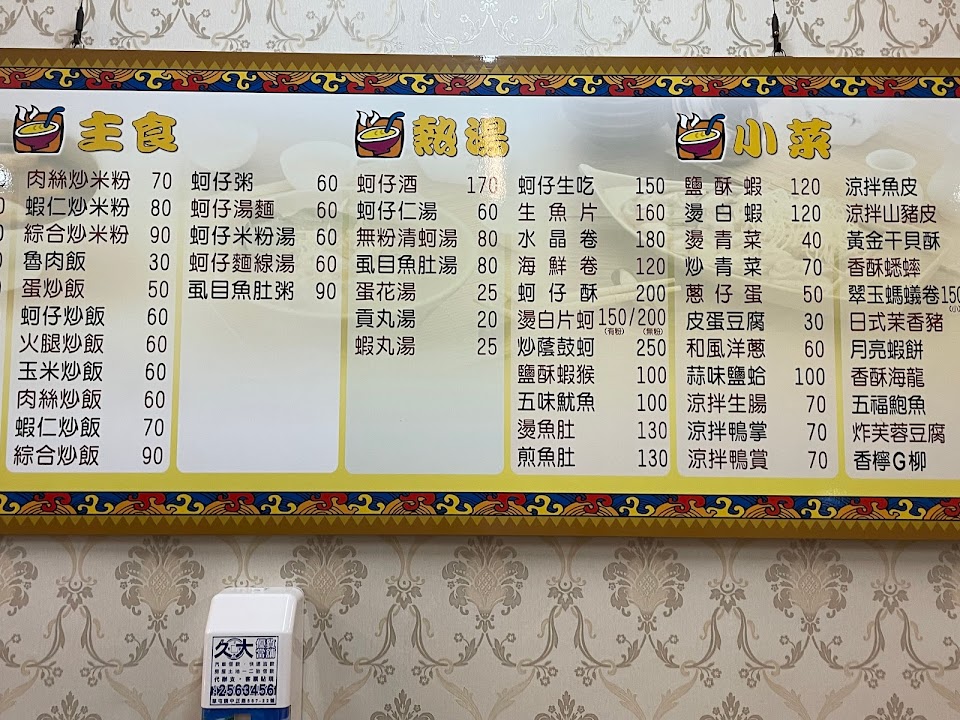 主食
肉絲炒米粉 70
蝦仁炒米粉 80
綜合炒米粉 90
魯肉飯 30
蛋炒飯 50
蚵仔炒飯 60
火腿炒飯 60
玉米炒飯 60
肉絲炒飯 60
蝦仁炒飯 70
綜合炒飯 90
蚵仔粥 60
蚵仔湯麵 60
蚵仔米粉湯 60
蚵仔麵線湯 60
虱目魚肚粥 90
熱湯
蚵仔酒 170
蚵仔仁湯 60
無粉清蚵湯 80
虱目魚肚湯 80
蛋花湯 25
貢丸湯 20
蝦丸湯 25
蚵仔生吃 150
生魚片 160
水晶卷 180
海鮮卷 120
蚵仔酥 200
燙白片蚵 150/200
(有粉) (無粉)
炒蔭鼓蚵 250
鹽酥蝦猴 100
五味魷魚 100
燙魚肚 130
煎魚肚 130
小菜
鹽酥蝦 120
燙白蝦 120
燙青菜 40
炒青菜 70
蔥仔蛋 50
皮蛋豆腐 30
和風洋蔥 60
蒜味鹽蛤 100
涼拌生腸 70
涼拌鴨掌 70
涼拌鴨賞 70
涼拌魚皮
涼拌山豬皮
黃金干貝酥
香酥蟋蟀
翠玉螞蟻卷 150
日式茉香豬
月亮蝦餅
香酥海龍
五福鮑魚
炸芙蓉豆腐
香檸G柳
久大
優質當舖
2563456